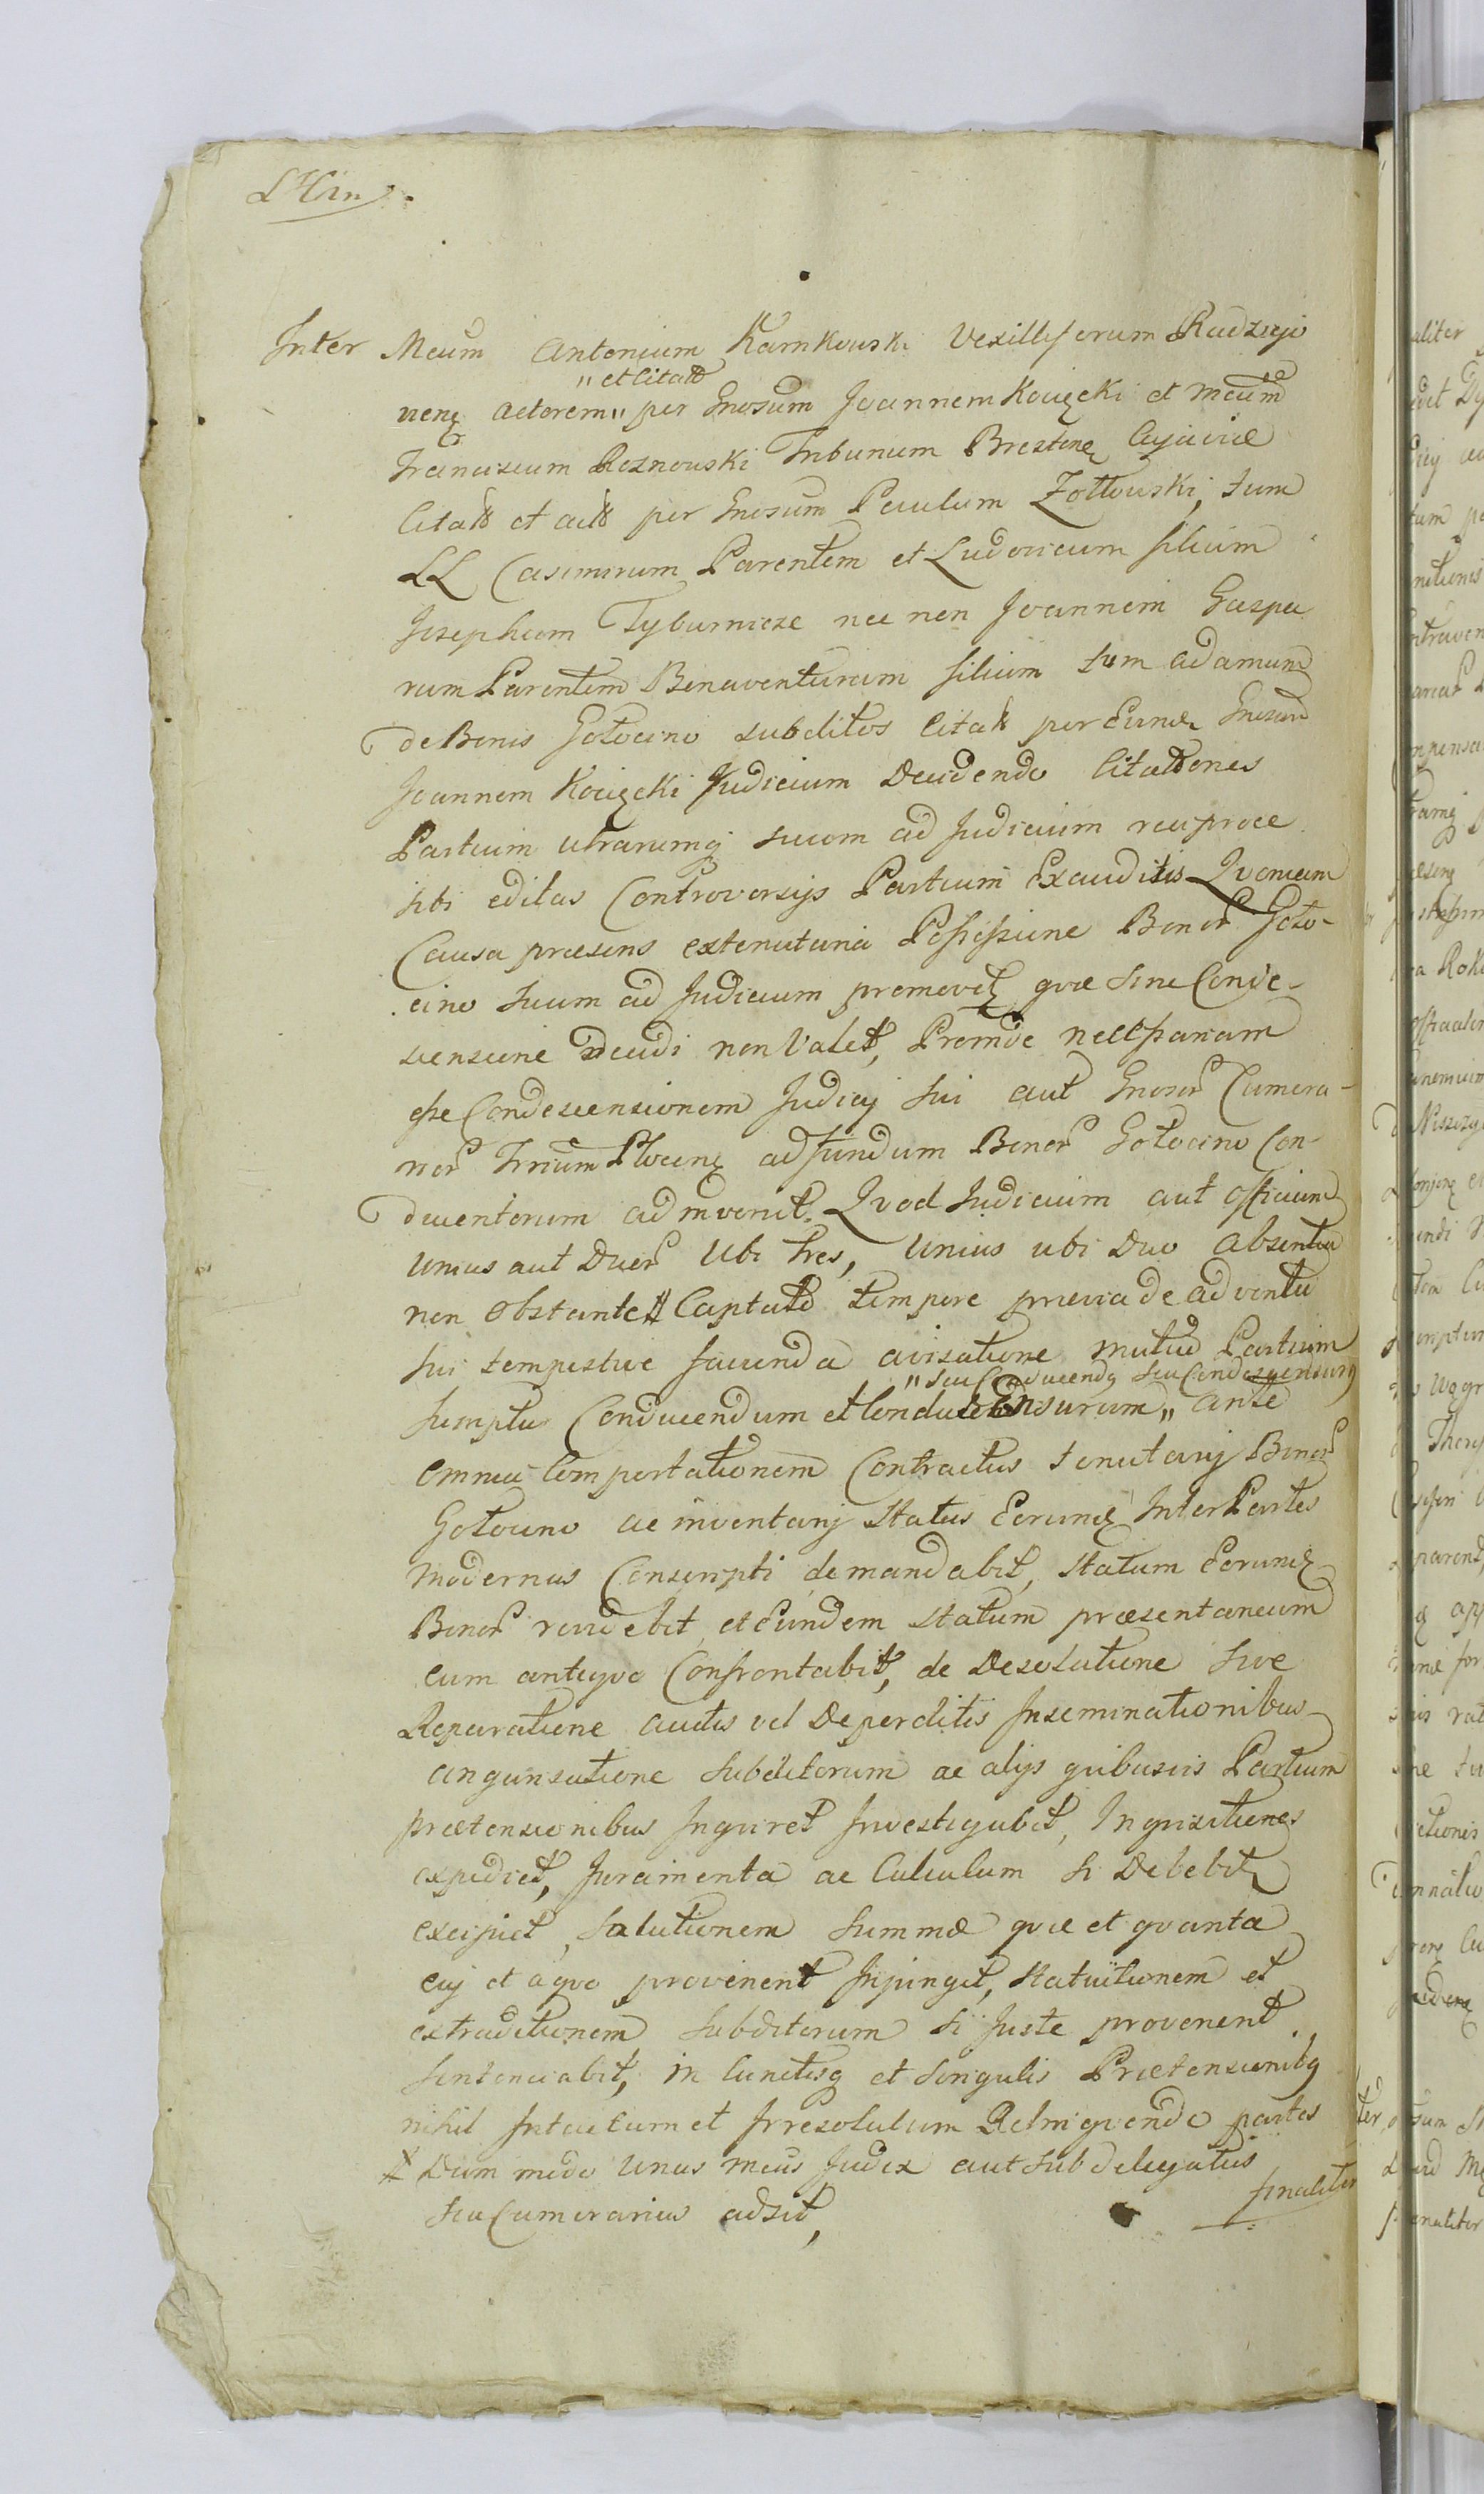 Inter Meum Antonium Karnkowski Vexilliferum Radziejo
"et Citatt
nen Actorem " per Gnosum Joannem Kocięcki et Meum
Franciscum Roznowski Tribunum Brestens Cujaviæ
Citatt et act per Gnosum Paulum Zołtowski, tum
LL Casimirum Parentem et Ludovicum filium
Josephum Tyburnicze nec non Joannem Gaspa
rum Parentem Bonaventuram filium tum Adamum
de Bonis Gołocino subditos Citatt per Eund Gnosum
Joannem Kocięcki Judicium Decidendo Citationes
Partium utrarumq suum ad Judicium reciproce
sibi editas Controversijs Partium Exauditis Qvoniam
Causa præsens ex tenutaria Possessione Bonor Goło-
cino suum ad Judicium promovet qvæ sine Conde-
scensione decidi non Valet, Proinde necessariam
esse Condescensionem Judicij sui aut Gnosor Camera-
rior Trrium Plocen ad fundum Bonor Gołocino Con-
ducentorum adinvenit. Qvod Judicium aut officium
unius aut Duor Ubi Tres, Unius ubi Duo absentia
non obstante # Captato tempore prævia de adventu
sui tempestive facienda avisatione mutuo Partium
" seu Conducend seu Condescensurus
sumptu Conducendum et Condescensurum " ante
omnia Comportationem Contractus tenutarij Bonor
Gołocino ac inventarij Status Eorund Inter Partes
modernas Conscripti demandabit, Statum Eorund
Bonor revidebit, et Eundem statum præsentaneum
cum antiqvo Confrontabit, de Desolatione sive
Reparatione auctis vel Deperditis Inseminationibus
angarisatione Subditorum ac alijs qvibusvis Partium
prætensionibus Inqviret Investigabit, Inqvisitiones
expediet, Juramenta ac Calculum si Debebit
excipiet, Solutionem Summæ qvæ et qvanta
cuj et a qvo provenient Injunget, Statuitionem et
extraditionem Subditorum si Juste provenient
Sententiabit, in Cunctisq et Singulis Prætensionibq
nihil Intactum et Irresolutum Relinqvendo partes
# Dum modo Unus meus Judex aut Subdelegatus
seu Camerarius adsit,
finaliter